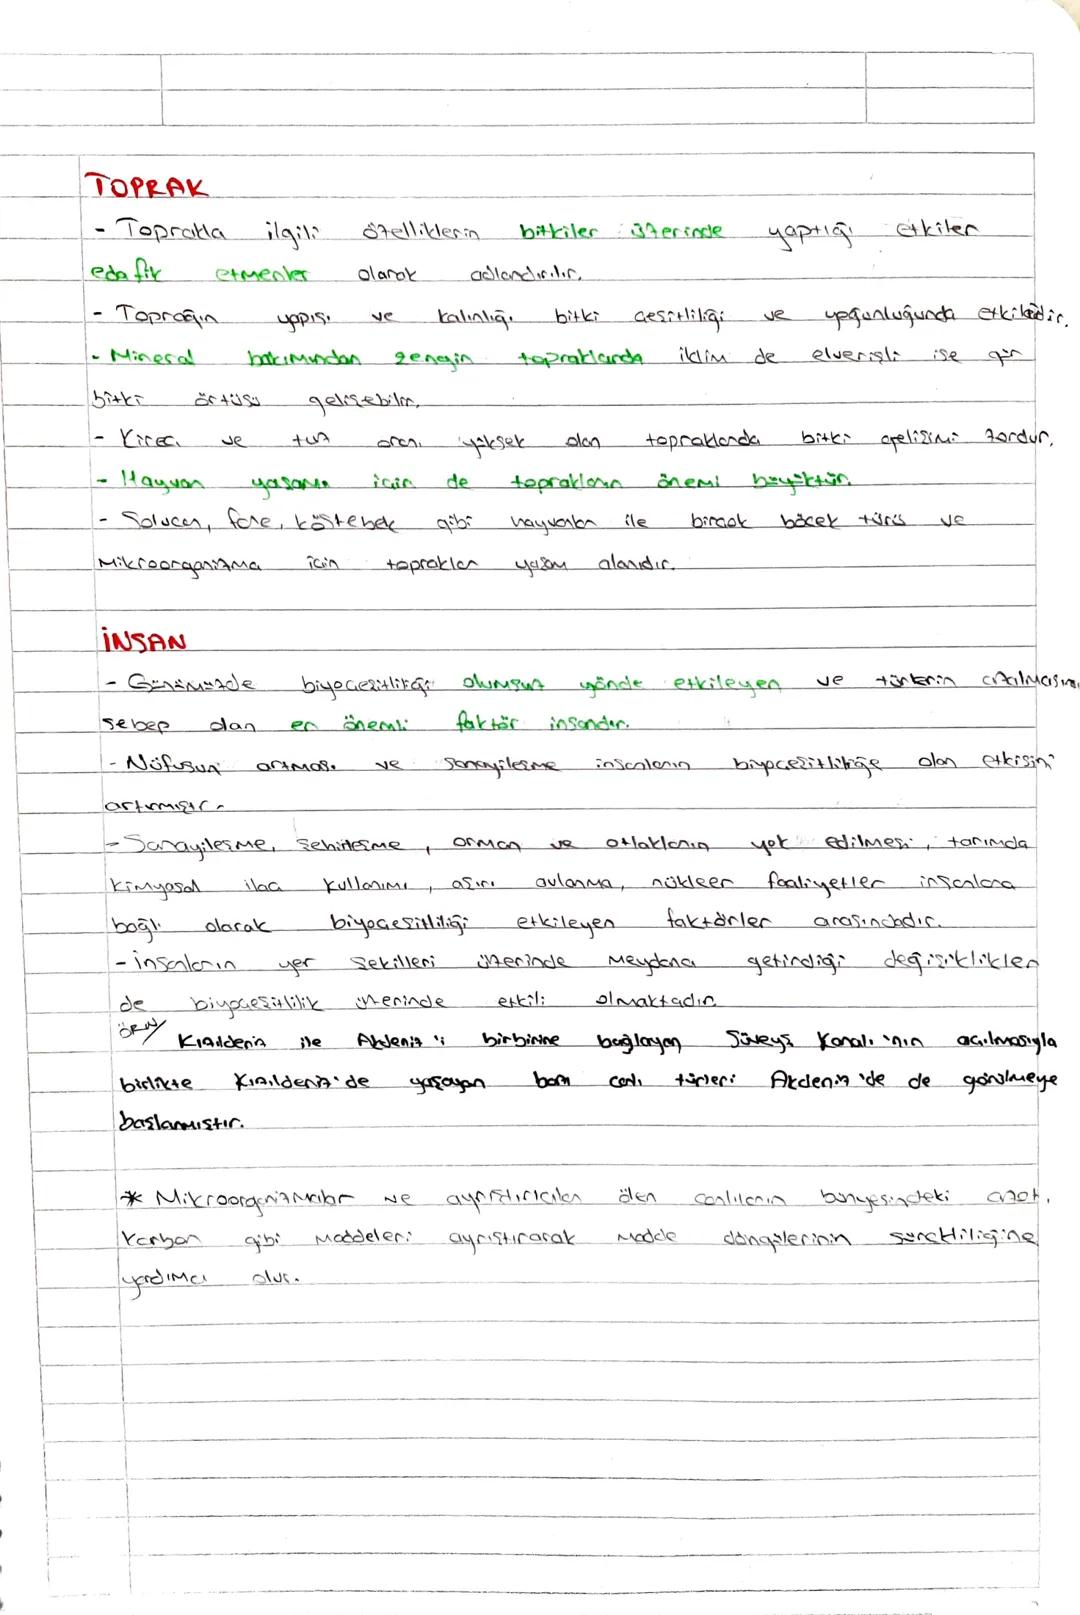 TOPRAK
- Toprakla ilgili özelliklerin bitkiler üzerinde yaptığı etkiler
edafik etmenler olarak adlandırılır.
- Toprağın yapısı ve kalınlığı bitki çeşitliliği ve yoğunluğunda etkilidir.
- Mineral bakımından zengin topraklarda iklim de elverişli ise gür
bitki örtüsü gelişebilir.
- Kireci ve tuz oranı yüksek olan topraklarda bitki gelişimi zordur.
- Hayvan yaşamı için de toprakların önemi büyüktür.
- Solucan, fare, köstebek gibi hayvanlar ile birçok böcek türü ve
Mikroorganizma için topraklar yaşam alanıdır.
İNSAN
- Günümüzde biyoçeşitliliği olumsuz yönde etkileyen ve türlerin azalmasına
sebep olan en önemli faktör insandır.
- Nüfusun artması ve sanayileşme insanların biyoçeşitliliğe olan etkisini
artırmıştır.
- Sanayileşme, şehirleşme, orman ve otlakların yok edilmesi, tarımda
kimyasal ilaç kullanımı, aşırı avlanma, nükleer faaliyetler insanlara
bağlı olarak biyoçeşitliliği etkileyen faktörler arasındadır.
- İnsanların yer şekilleri üzerinde meydana getirdiği değişiklikler
de biyoçeşitlilik üzerinde etkili olmaktadır.
ÖRN/ Kızıldeniz ile Akdeniz'i birbirine bağlayan Süveyş Kanalı'nın açılmasıyla
birlikte Kızıldeniz'de yaşayan bazı canlı türleri Akdeniz'de de görülmeye
başlanmıştır.
* Mikroorganizmalar ve ayrıştırıcılar ölen canlıların bünyesindeki azot,
karbon gibi maddeleri ayrıştırarak madde döngülerinin sürekliliğine
yardımcı olur.